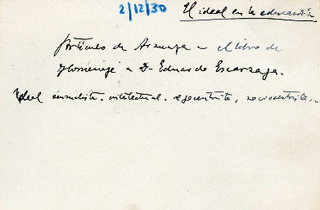 2/12/30
El ideal en la educación
Artículo de Aranza - el libro de
homenaje a D. Eduardo Escarzaga.
Ideal sensualista, intelectual, egocentrista, sociocentrista.